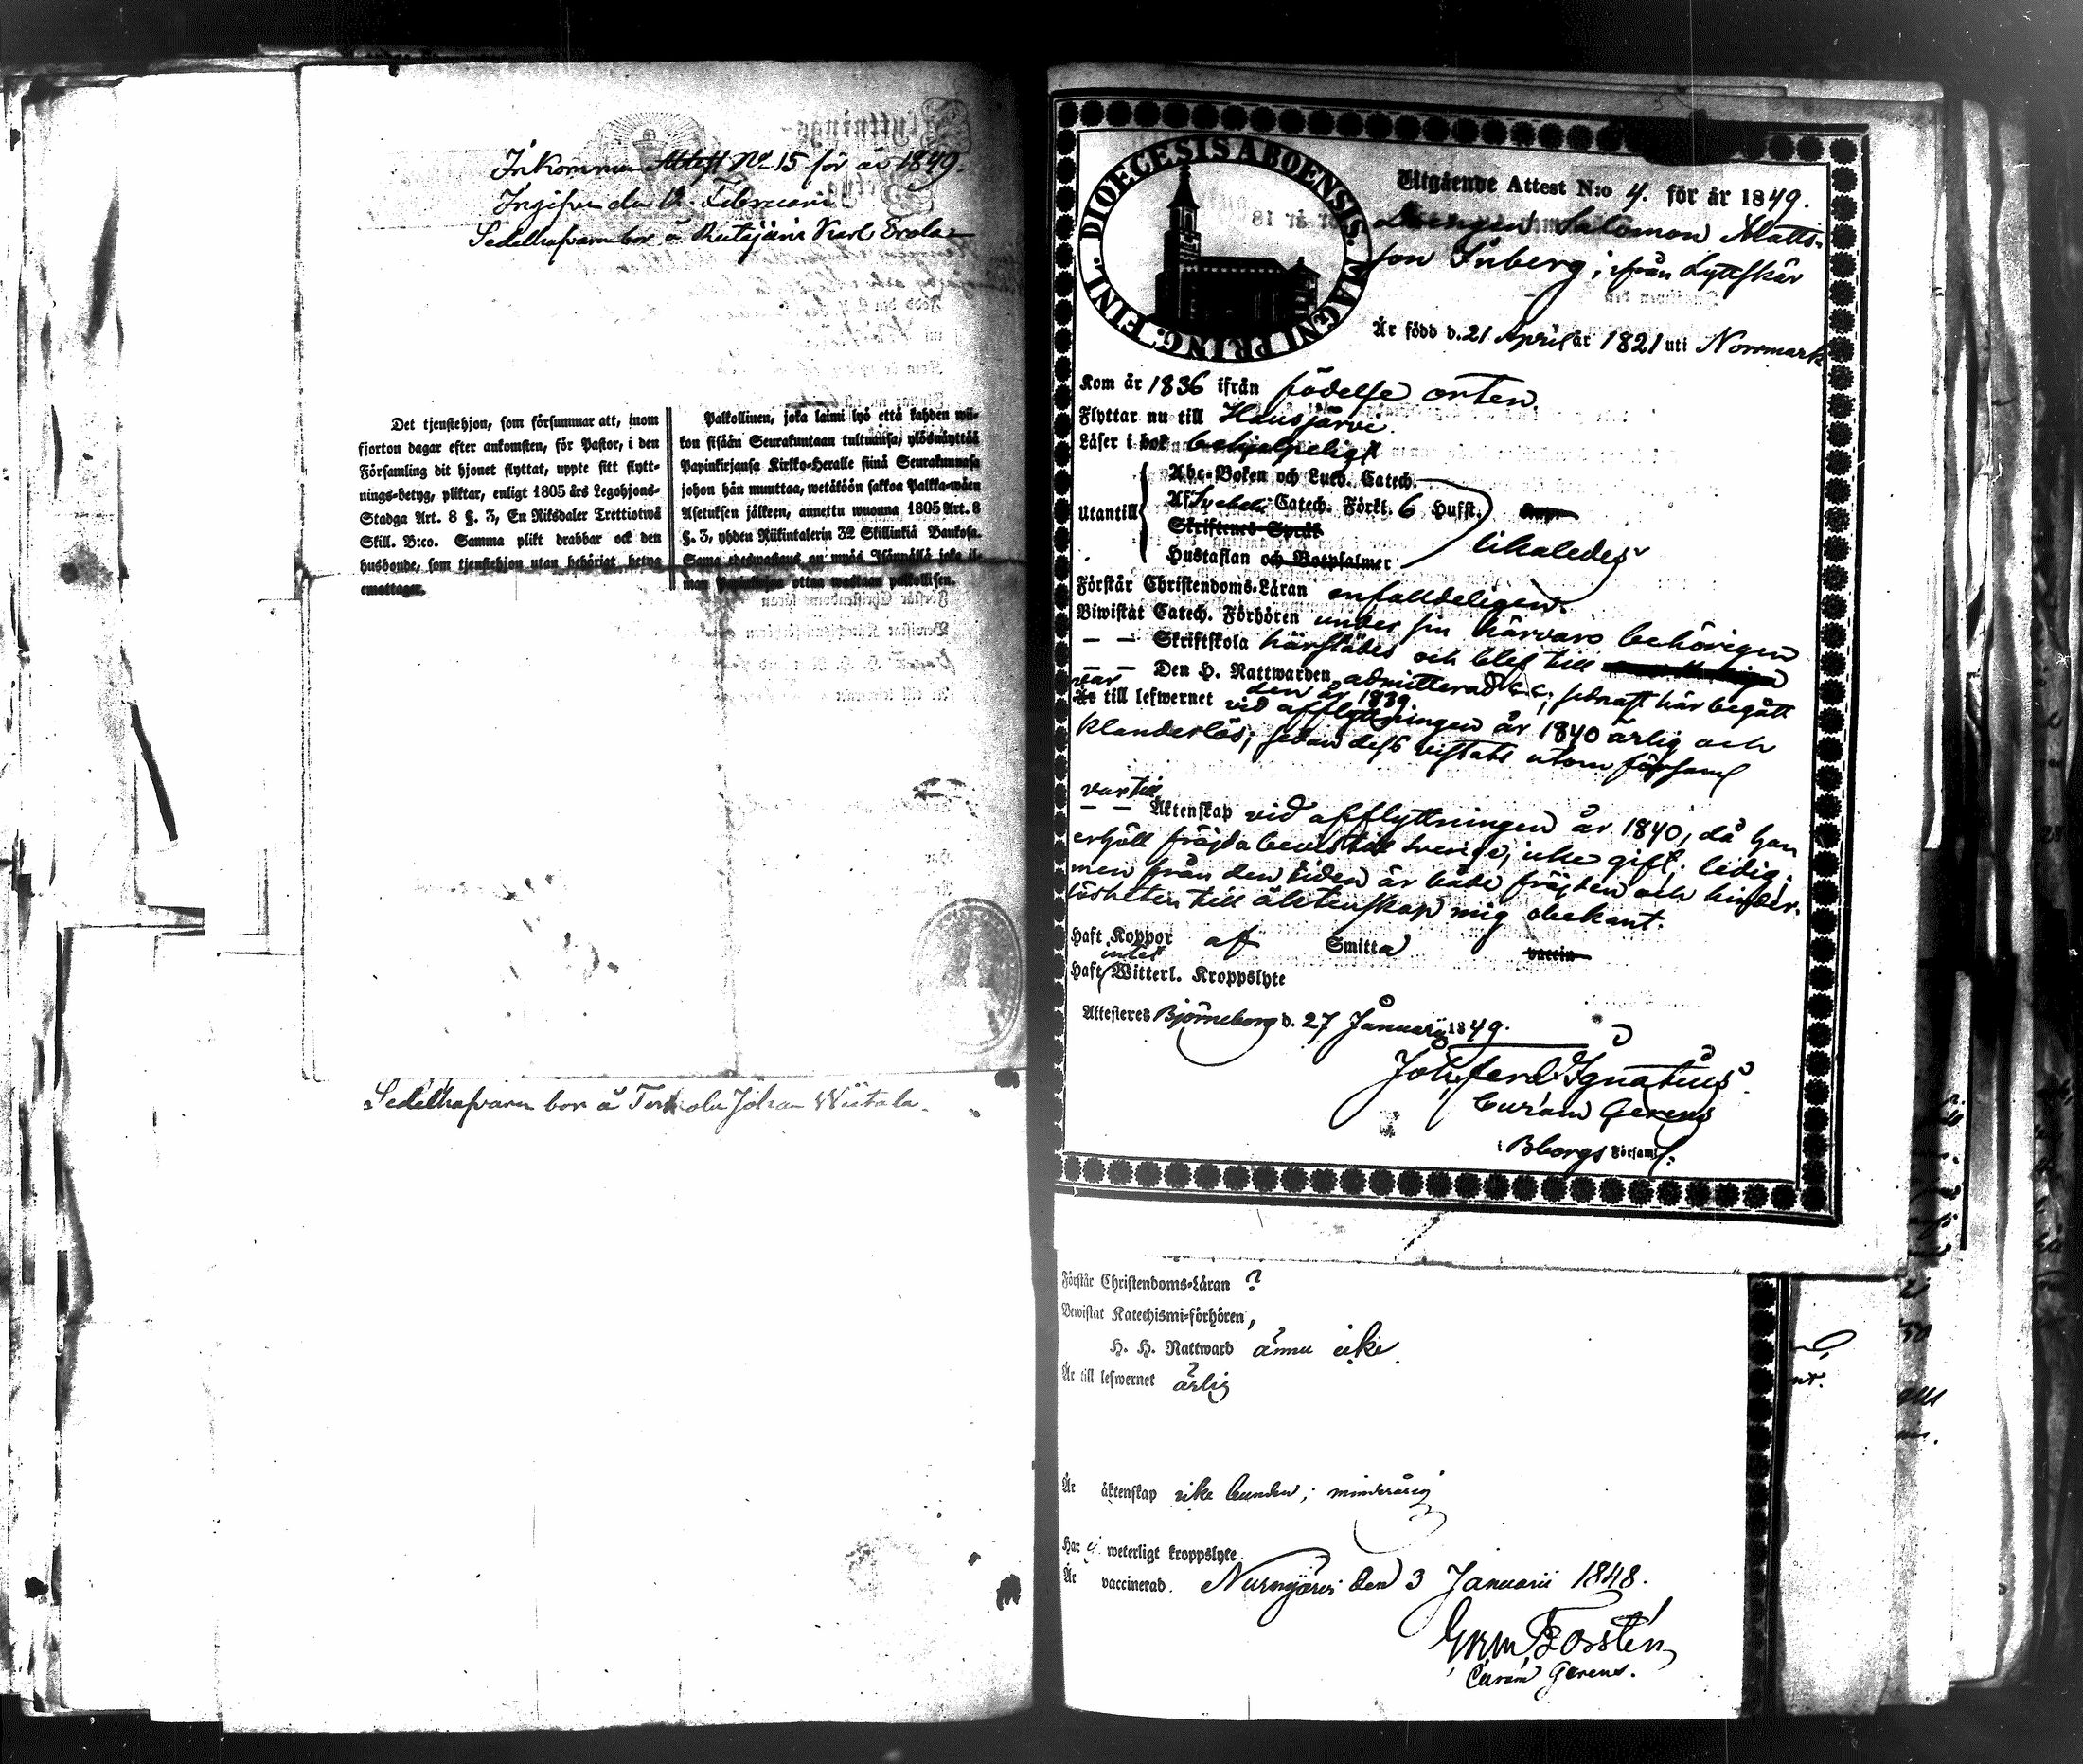 Inkommen Attest No 15 för år 1849.
Ingifven den Februari
Sedelhafvaren bor å Karl Erola
Det tjenstehjon, som försummar att, inom
fjorton dagar efter ankomsten, för Pastor, i den
Församling dit hjonet flyttat, uppte sitt flytt-
nings-betyg, pliktar, enligt 1805 års Legohjons-
Stadga Art. 8 §. 3, En Riksdaler Trettiotwå
Skill. B:co. Samma plikt drabbar ock den
husbonde, som tjenstehjon utan behörigt betyg
emottager.
Palkollinen, joka laimi lyö että kahden wii-
kon sisään Seurakuntaan tultuansa, ylösnäyttää
Papinkirjansa Kirkko-Heralle siinä Seurakunnasa
johon hän muuttaa, wetäköön sakkoa Palkka-wäen
Asetuksen jälkeen, annettu wuonna 1805 Art. 8
§. 3, yhden Riikintalerin 32 Skillinkiä Bankosa.
Sama edeswastaus on myös Isännällä joka il-
man Papinkirjaa ottaa wastaan palkollisen.
Sedelhafvaren bor å Johan Wiitala.
DIOECESIS ABOENSIS. MAGNI PRINC. FINL.
Utgående Attest N:o 4. för år 1849.
Drengen Salomon Matts-
son Inberg, ifrån Lyttskär
Är född d. 21 April år 1821 uti Norrmark
Kom år 1836 ifrån födelse orten.
Flyttar nu till Hausjärvi.
Läser i bok behjelpeligt
Abc-Boken och Luth. Catech.
Utantill Af Svebeli Catech. Förkl. 6 Hufst.
Skriftenes Språk
likaledes
Hustaflan och Botpsalmer
Förstår Christendoms-Läran enfalldeligen.
Biwistat Catech. Förhören under sin härvaro behörigen
— — Skriftskola härstädes och blef till
— — Den H. Nattwarden admitterad ; sednast här begått
den år 1839
var
Är till lefwernet vid afflyttningen år 1840 ärlig och
klanderlös; sedan dess vistats utom församl
var till
— — Äktenskap vid afflyttningen år 1840, då han
erhöll fräjdabevis till Sverige, icke gift. ledig.
men från den tiden är både fräjden och hinder-
lösheten till äktenskap mig obekant.
Haft Koppor af Smitta vaccin
intet
Haft Witterl. Kroppslyte
Attesteres Björneborg d. 27 Januarii 1849.
Joh. Ferd. Ignatius
Curam Gerens
i Bborgs Församl:
Förstår Christendoms-Läran ?
Bewistat Katechismi-förhören,
H. H. Nattward ännu icke
Är till lefwernet ärlig
Är äktenskap icke bunden; minderårig
Har ej weterligt kroppslyte.
Är vaccinerad. Nurmijärvi den 3 Januarii 1848.
Forstén
Curam Gerens.